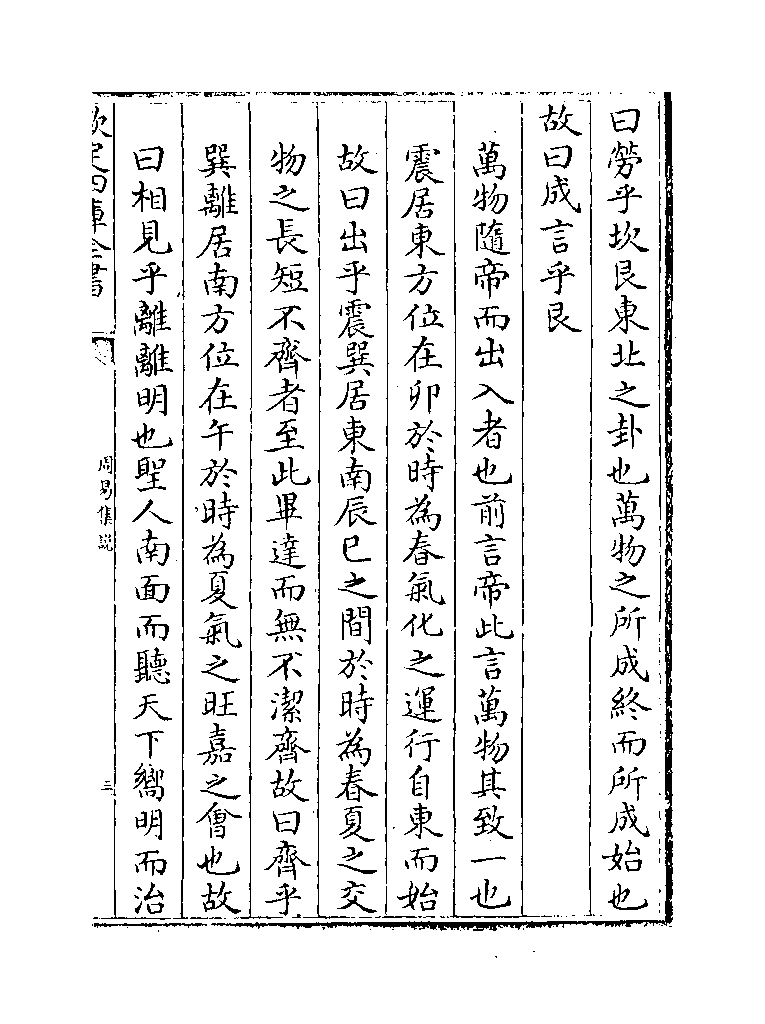 曰勞乎坎艮東北之卦也萬物之所成終而所成始也
故曰成言乎艮
萬物隨帝而出入者也前言帝此言萬物其致一也
震居東方位在卯於時為春氣化之運行自東而始
故曰出乎震巽居東南辰巳之間於時為春夏之交
物之長短不齊者至此畢達而無不潔齊故曰齊乎
巽離居南方位在午於時為夏氣之旺嘉之㑹也故
曰相見乎離離明也聖人南面而聽天下嚮明而治
欽定四庫全書
周易集説
三